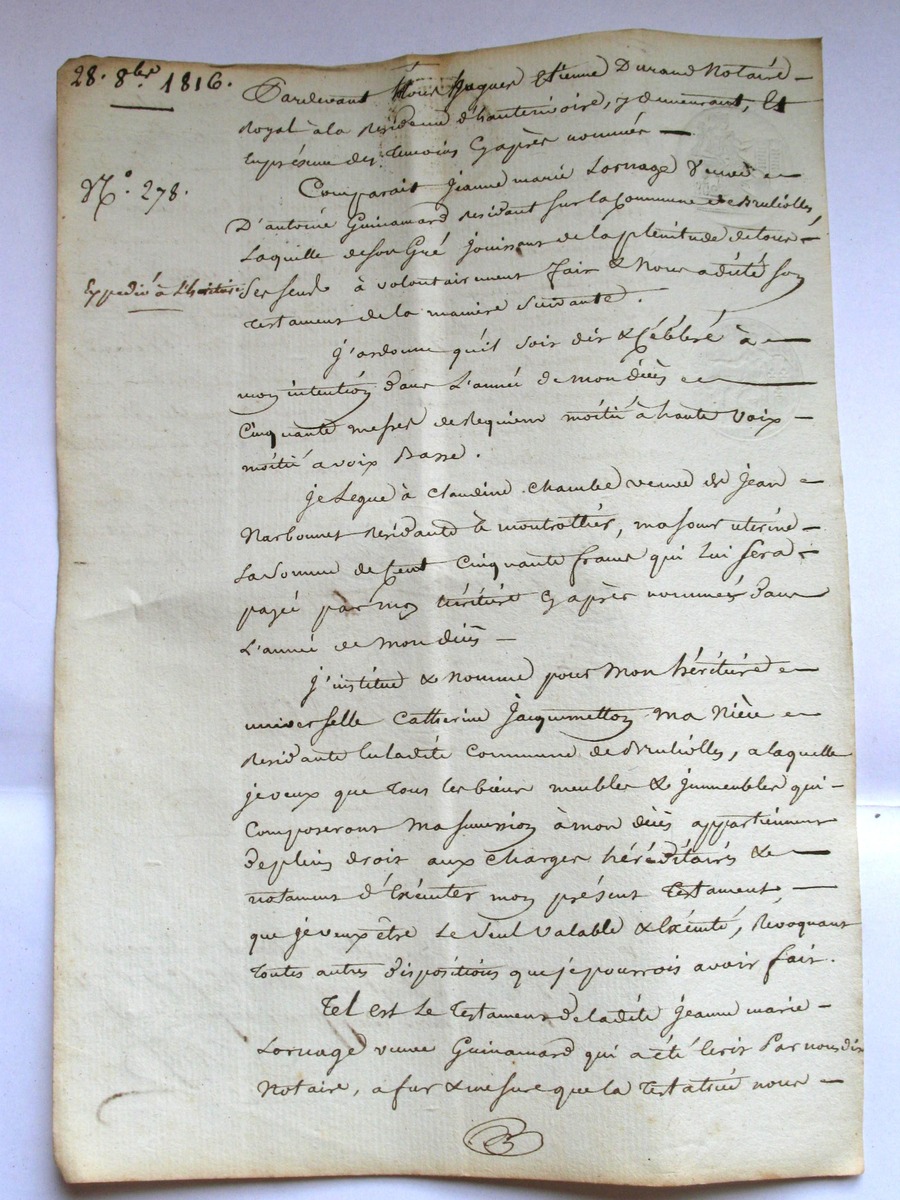 28. 8bre 1816.
Pardevant Nous Jaques Etienne Durand Notaire
Royal à la Résidence d'hauterivoire, y demeurant, Et
En présence des temoins Cyaprès nommés
N.° 278.
Comparait Jeanne marie Lornage Veuve
D'antoine Guinamard Résidant sur la Commune de Brullioles,
Laquelle de son Gré jouissant de la plénitude de tous
Expedié à L'héritière
Ses sens à volontairement fait & Nous a dicté son
testament de la maniere Suivante.
J'ardonne qu'il soit dit & Célébré à
mon intention dans L'année de mon décès
Cinquante messes de Requiem moitié à haute Voix
moitié a voix Basse.
Je Legue à Claudine Chambe veuve de Jean
Narbonnet Résidante à montrottier, ma sœur uterine
La Somme de Cent Cinquante francs qui Lui sera
payée par mon héritière Cyaprès nommée dans
L'année de Mon décès
J'institue & nomme pour Mon héritière
universelle Catherine Jacquemetton ma Nièce
Résidante En ladite Commune de Brullioles, a laquelle
je veux que tous les biens meubles & jmmeubles qui
Composeront Ma succession à mon décès appartiennent
de plein droit aux charges héréditaires &
notament d'Exécuter mon présent testament,
que je veux être Le seul Valable & Exécuté, Révoquant
toutes autres dispositions que je pourrois avoir fait.
Tel est Le testament de ladite Jeanne marie
Lornage veuve Guinamard qui a été Ecrit Par nous dit
Notaire, a fur & mesure que la testatrice nous